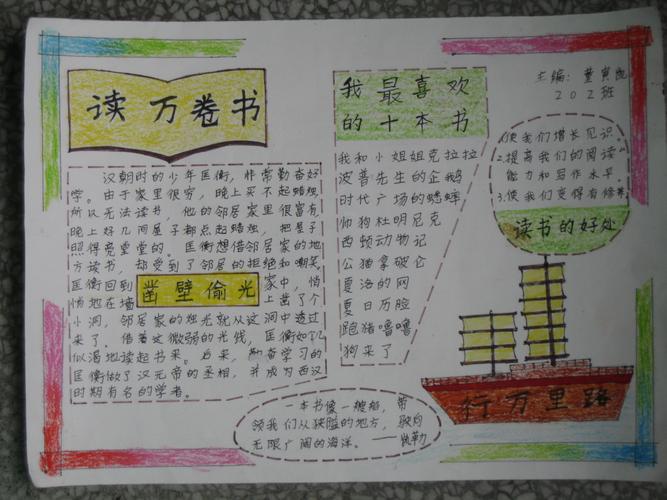 读万卷书
汉朝时的少年匡衡，非常勤奋好
学。由于家里很穷，晚上买不起蜡烛
所以无法读书，他的邻居家里很富有
晚上好几间屋子都点起蜡烛，把屋子
照得亮堂堂的。匡衡想借邻居家的地
方读书，却受到了邻居的拒绝和嘲笑
匡衡回到
家中，悄
悄地在墙
上凿了个
凿壁偷光
小洞，邻居家的烛光就从这洞中透过
来了。借着这微弱的光线，匡衡如饥
似渴地读起书来。后来，勤奋学习的
匡衡做了汉元帝的丞相，并成为西汉
时期有名的学者。
我最喜欢
的十本书
我和小姐姐克拉拉
波普先生的企鹅
时代广场的蟋蟀
帅狗杜明尼克
西顿动物记
公猫拿破仑
夏洛的网
夏日历脸
跑猪噜噜
狗来了
主编：董寅
202班
1.使我们增长见识。
2.提高我们的阅读
能力和写作水平。
3.使我们变得有修养
读书的好处
行万里路
一本书像一艘船，带
领我们从狭隘的地方，驶向
无限广阔的海洋。——凯勒